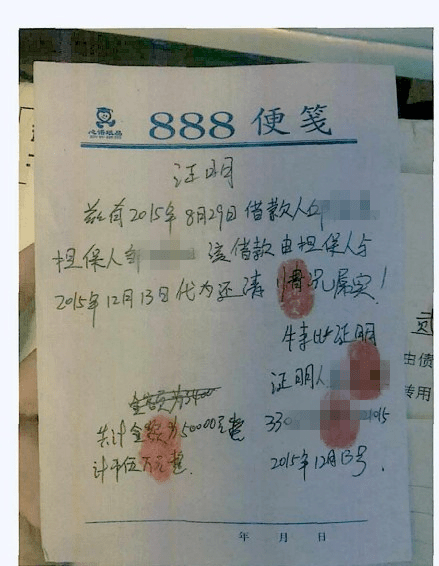 888 便笺
证明
兹有2015年8月29日借款人
担保人 该借款由担保人与
2015年12月13日代为还清 情况属实!
特此证明
证明人
330 1015
2015年12月13号
金额为3400
共计金额为50000元整
计 伍万元整.
年 月 日